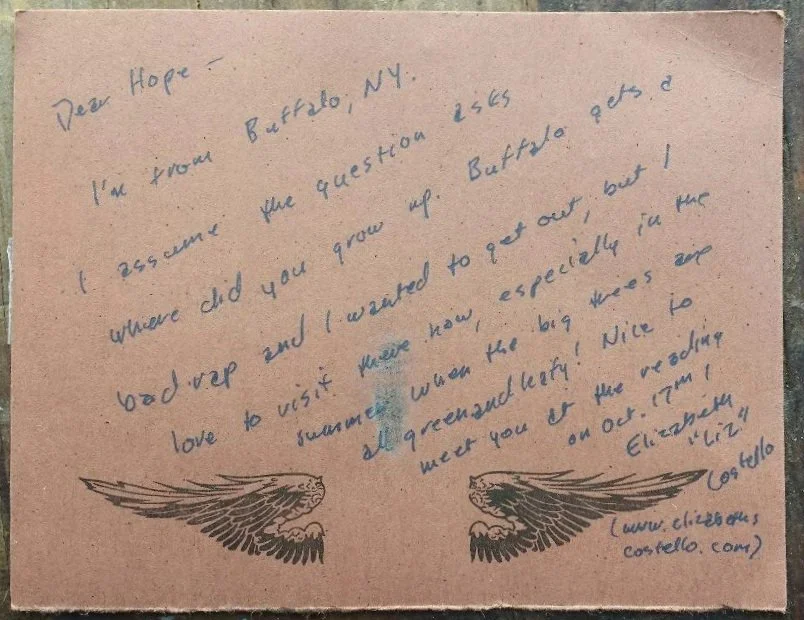 Dear Hope -
I'm from Buffalo, NY.
I assume the question asks
where did you grow up. Buffalo gets a
bad rap and I wanted to get out, but I
love to visit there now, especially in the
summer when the big trees are
all green and leafy! Nice to
meet you at the reading
on Oct. 17th,
Elizabeth
"Liz"
Costello
(www.elizabeths
costello.com)